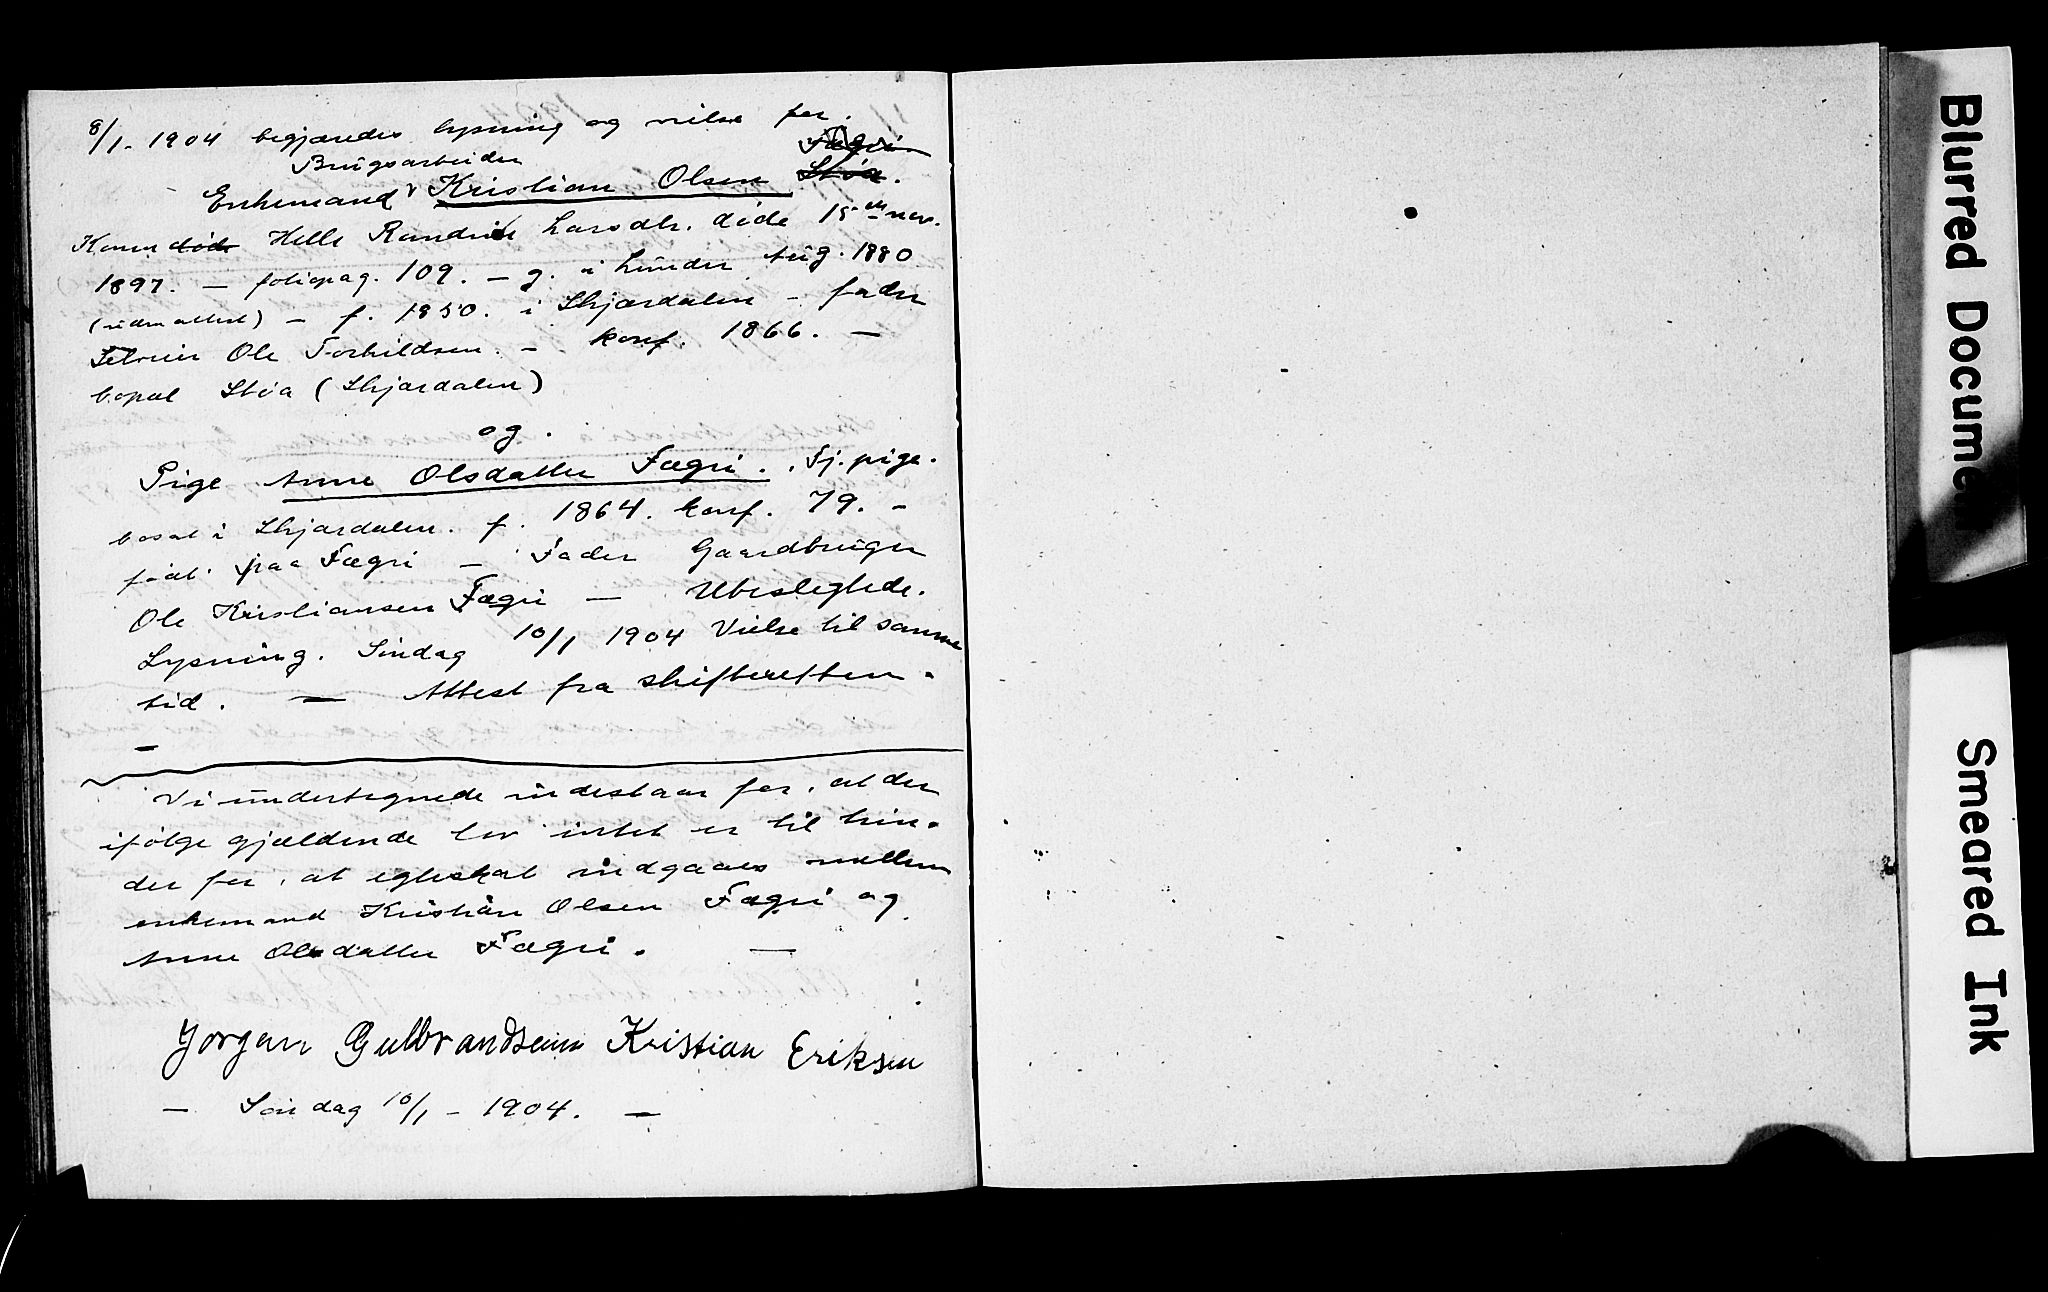 8/1. 1904 begjæredes lysning og vielse for.
Brugsarbeider Fægri
Enkemand Kristian Olsen Støa.
Konen døde Helle Randine Larsdtr. døde 15de nov.
1897. — foliopag. 109. — g. i Lunder aug. 1880
(uden attest) — f. 1850. i Skjærdalen — fader
Ole Torkildsen. — konf. 1866. —
bopæl Støa (Skjærdalen)
og.
Pige Anne Olsdatter Fægri. Tj. pige.
bosat i Skjærdalen. f. 1864. konf. 79. —
født paa Fægri — Fader Gaardbruger
Ole Kristiansen Fægri — Ubeslegtede.
Lysning. Søndag 10/1 1904 Vielse til samme
tid. — Attest fra skifteretten.
—
Vi undertegnede indestaar for, at der
ifølge gjældende lov intet er til hin-
der for, at egteskab indgaaes mellem
enkemand Kristian Olsen Fægri og
Anne Olsdatter Fægri. —
Jørgen Gulbrandsen Kristian Eriksen
— Søndag 10/1 — 1904. —
Blurred Document
Smeared Ink